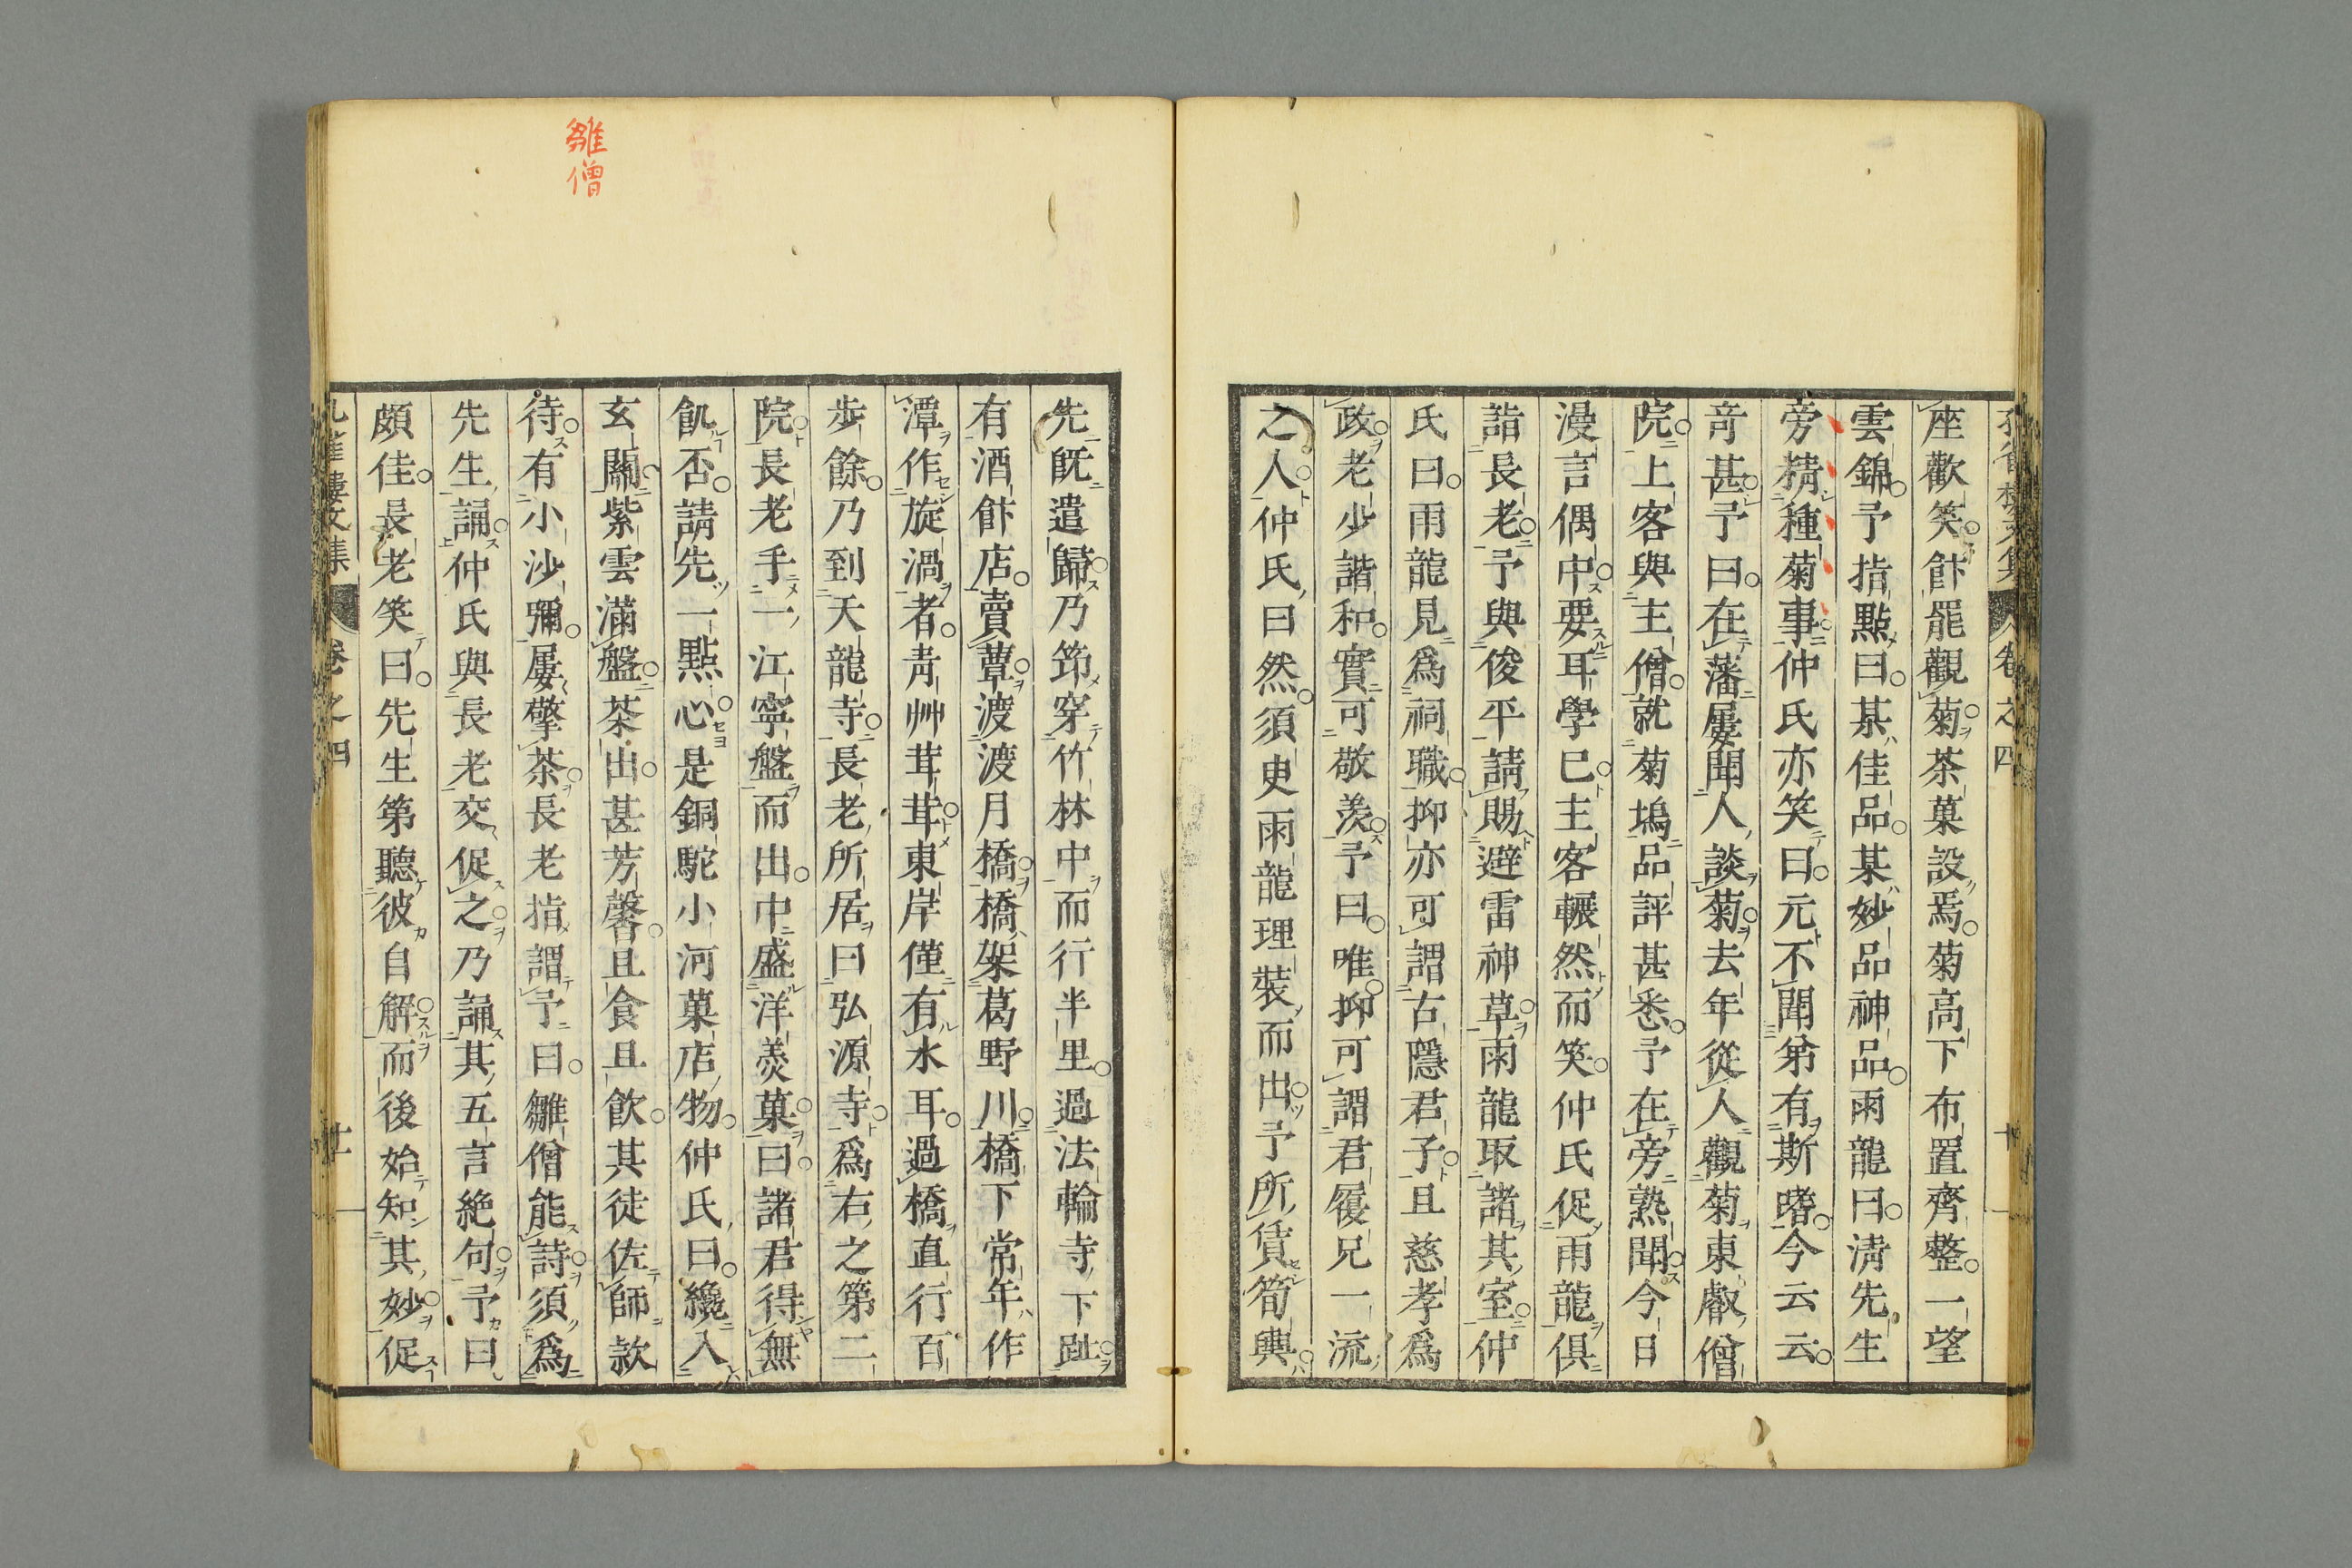 座歡笑飲罷觀菊茶菓設焉菊高下布置齊整一望
雲錦予指點曰某佳品某妙品神品雨龍曰清先生
旁精種菊事仲氏亦笑曰元不聞弟有斯嗜今云云
竒甚予曰在藩屢聞人談菊去年從人觀菊東叡僧
院上客與主僧就菊塢品評甚悉予在旁熟聞今日
漫言偶中要耳學已主客囅然而笑仲氏促雨龍俱
詣長老予與俊平請賜避雷神草雨龍取諸其室仲
氏曰雨龍見爲祠職抑亦可謂古隱君子且慈孝爲
政老少諧和實可敬羨予曰唯抑可謂君履兄一流
之人仲氏曰然須臾雨龍理裝而出予所賃筍輿
先既遣歸乃笻穿竹林中而行半里過法輪寺下趾
有酒餅店賣蕈渡渡月橋橋架葛野川橋下常年作
潭作旋渦者靑艸茸茸東岸僅有水耳過橋直行百
步餘乃到天龍寺長老所居曰弘源寺寺爲右之第二
院長老手一江寧盤而出中盛洋羮菓曰諸君得無
飢否請先一點心是銅駝小河菓店物仲氏曰纔入
玄關紫雲滿盤茶出甚芳馨且食且飮其徒佐師款
待有小沙彌屢擎茶長老指謂予曰雛僧能詩須爲
先生誦仲氏與長老交促之乃誦其五言絶句予曰
頗佳長老笑曰先生第聽彼自解而後始知其妙促
孔雀樓文集 卷之四
雛僧